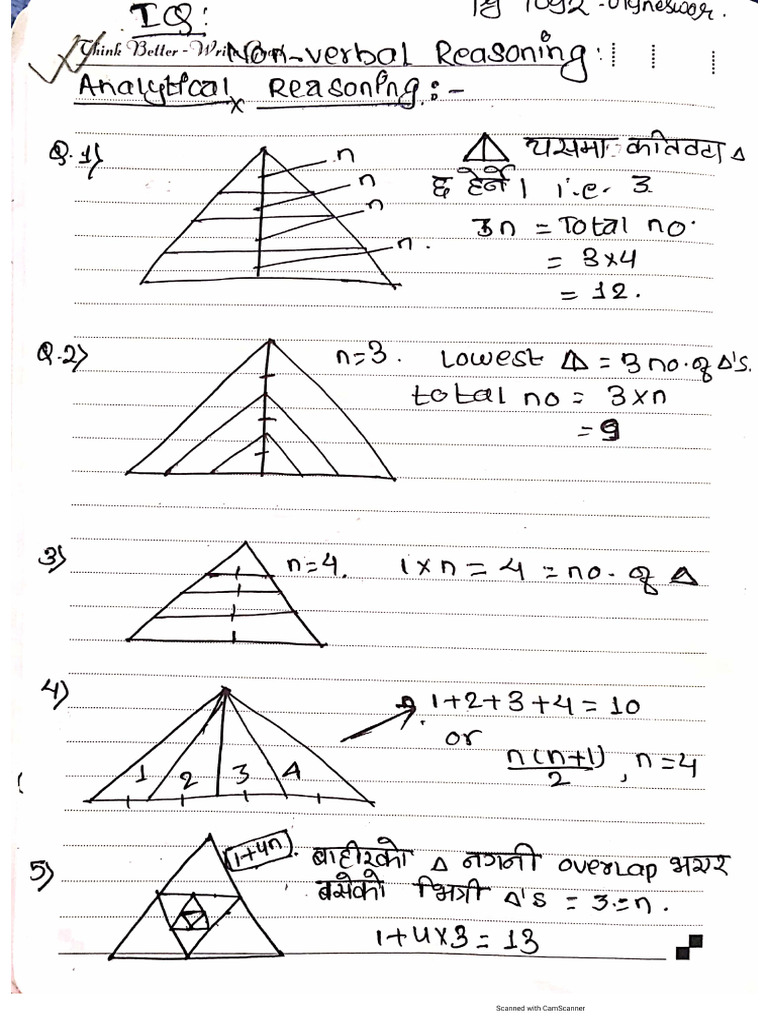 IQ:
Think Better - Wri
Non-verbal Reasoning:
Analytical Reasoning:-
Q.1)
n
n
n
n.
यसमा कतिवटा Δ
छ हेर्ने। i.e. 3.
3n = Total no.
= 3×4
= 12.
Q.2)
n=3. Lowest Δ = 3 no. of Δ's.
total no = 3×n
= 9
3)
n=4. 1×n = 4 = no. of Δ
4)
1+2+3+4 = 10
or
n(n+1)/2, n=4
1 2 3 4
5)
1+4n. बाहीरको Δ नगनी overlap भएर
बसेको भित्री Δ's = 3 = n.
1+4×3 = 13
Scanned with CamScanner